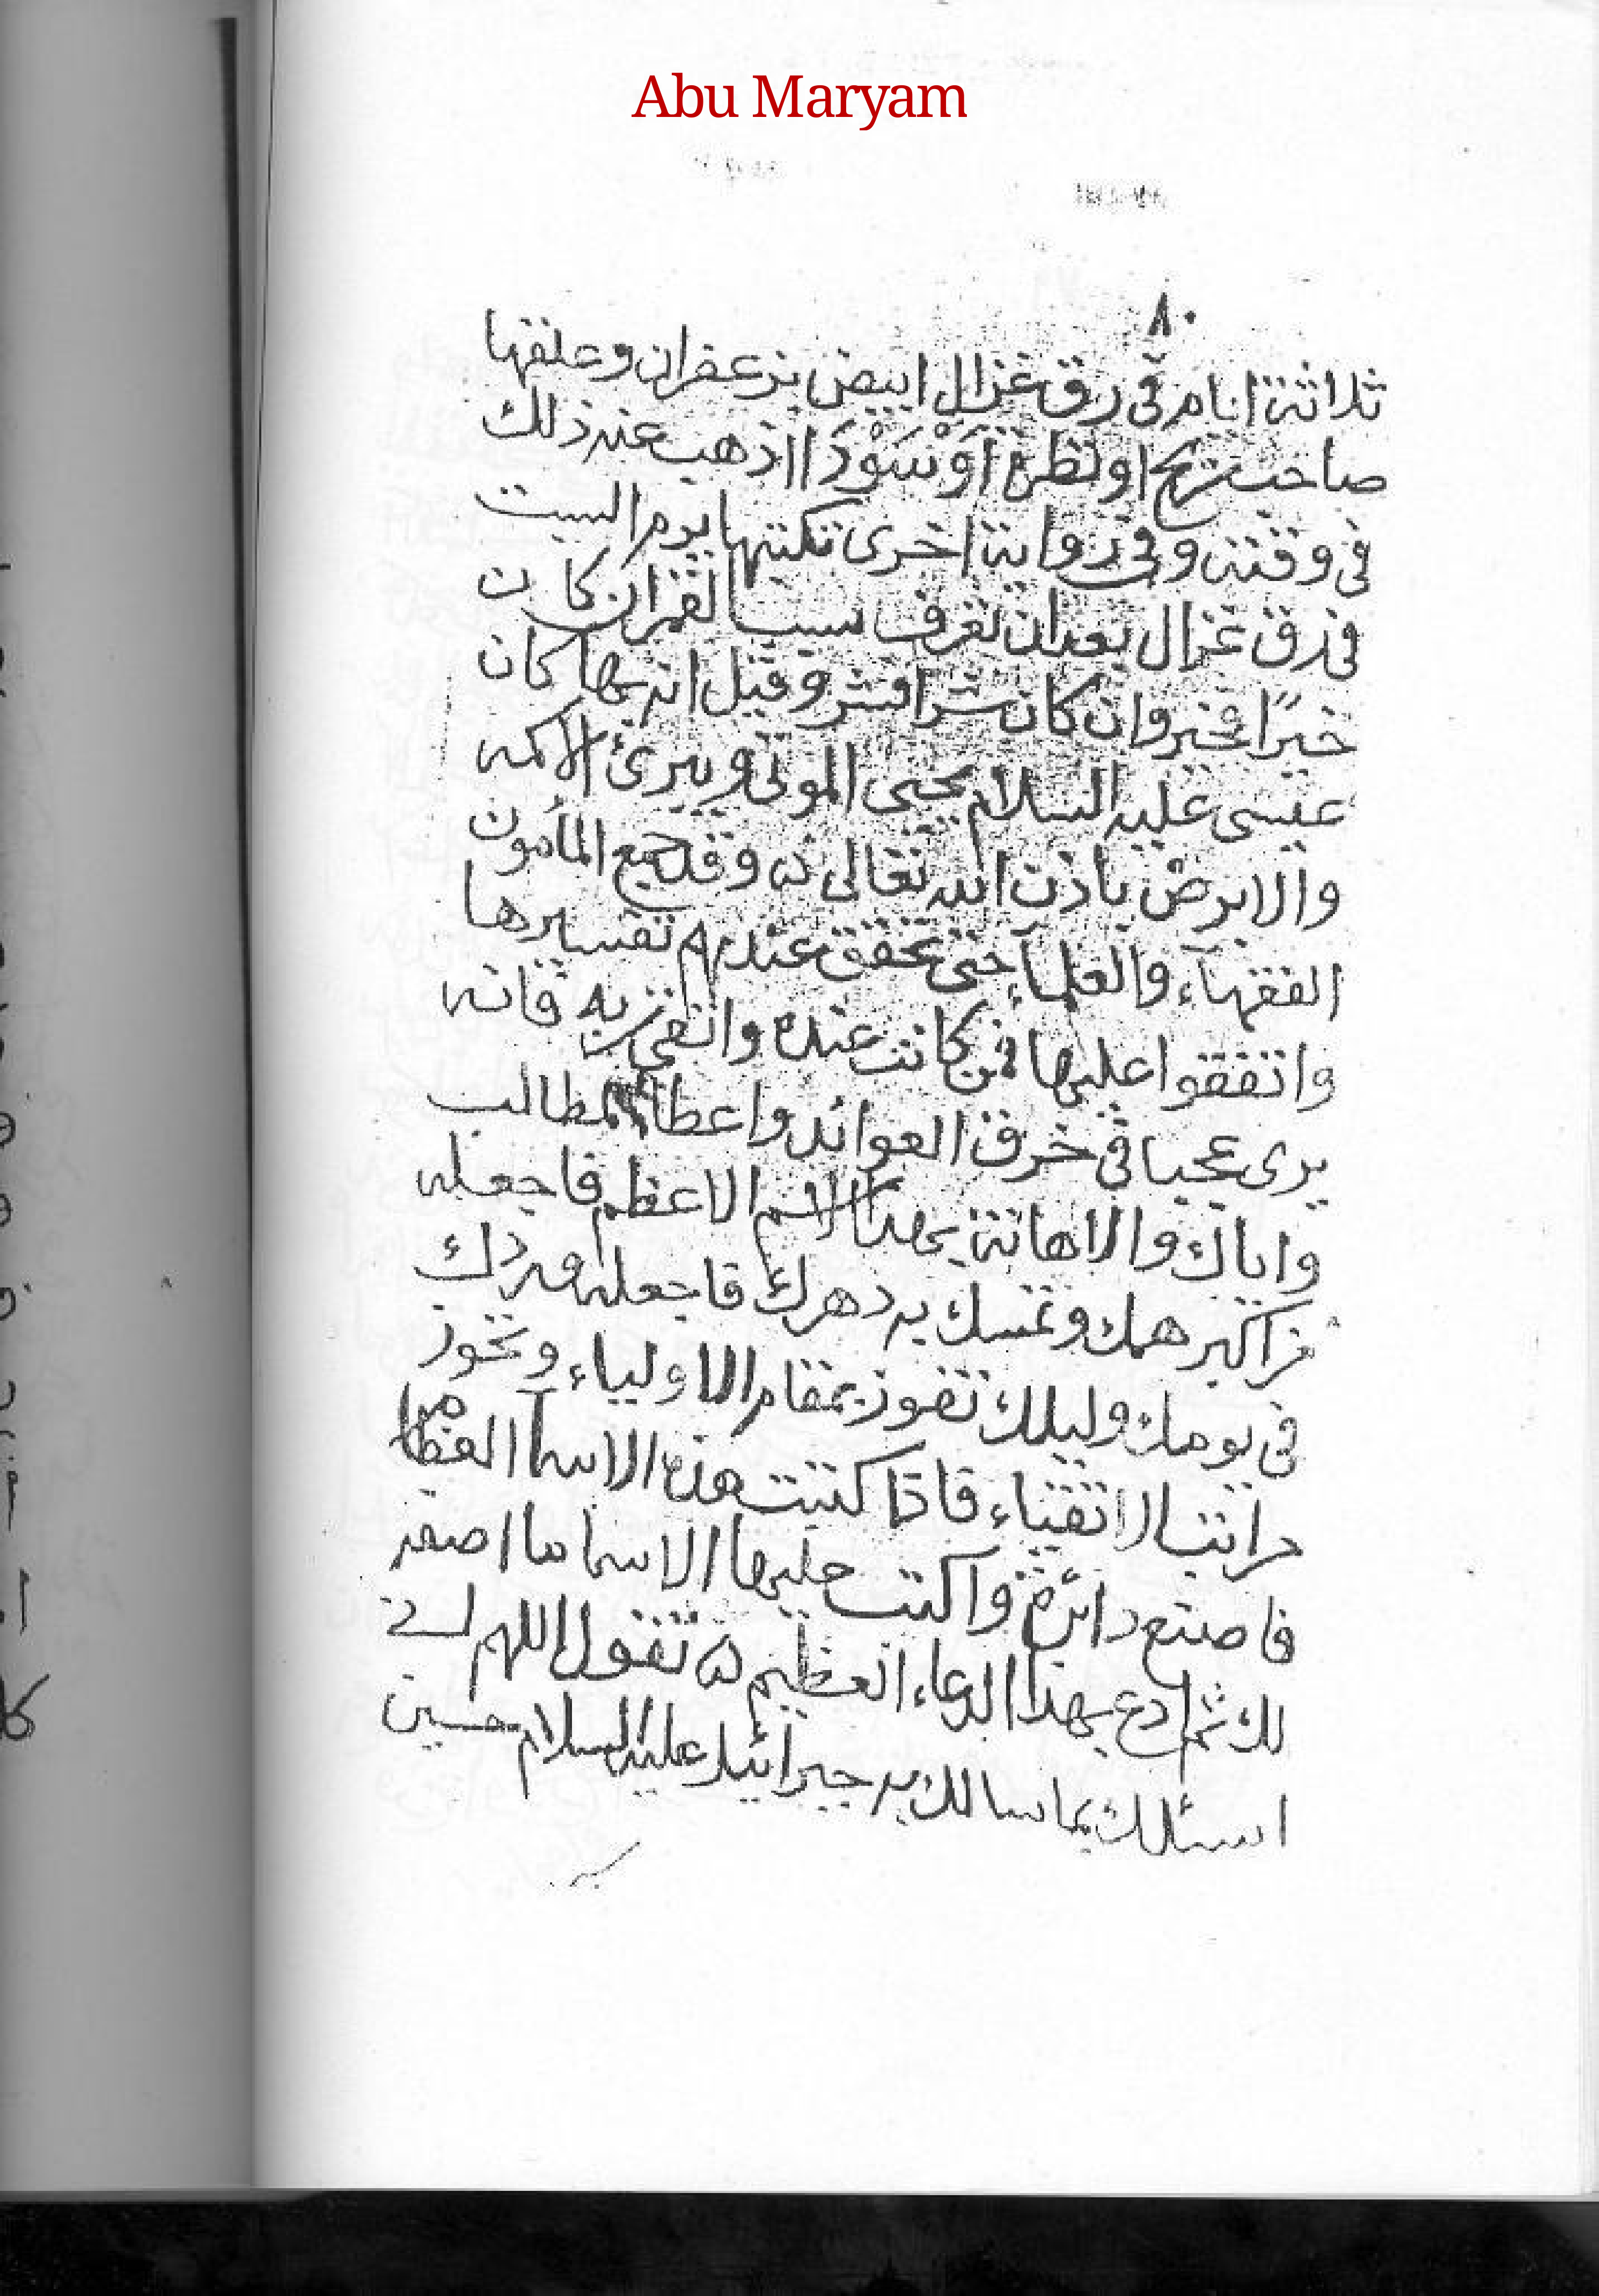 Abu Maryam
٨٠
ثلاثة ايام في رق غزال ابيض بزعفران وعلقها
صاحب ريح او نظرة اَوْ سَوْدَا اذهب عنه ذلك
في وقته وفي رواية اخرى تكتبها يوم السبت
في رق غزال بعد ان تعرف سبب القران كان
خيرًا فخير وان كان شرا فشر وقيل انه بها كان
عيسى عليه السلام يحيى الموتى ويبرئ الاكمه
والابرص باذن الله تعالى وقد جمع المأمون
الفقهاء والعلماء حتى تحقق عندهم تفسيرها
واتفقوا عليها فمن كانت عنده واتقى ربه فانه
يرى عجبا في خرق العوائد واعطاء المطالب
واياك والاهانة بهذا الاسم الاعظم فاجعله
من اكبر همك وتمسك به دهرك فاجعله وردك
في يومك وليلك تفوز بمقام الاولياء وتحوز
مراتب الاتقياء فاذا كتبت هذه الاسمآ العظام
فاصنع دائرة واكتب عليها الاسما ما اصفه
لك ثم ادع بهذا الدعاء العظيم تقول اللهم انى
اسئلك بما سالك به جبرائيل عليه السلام حسين